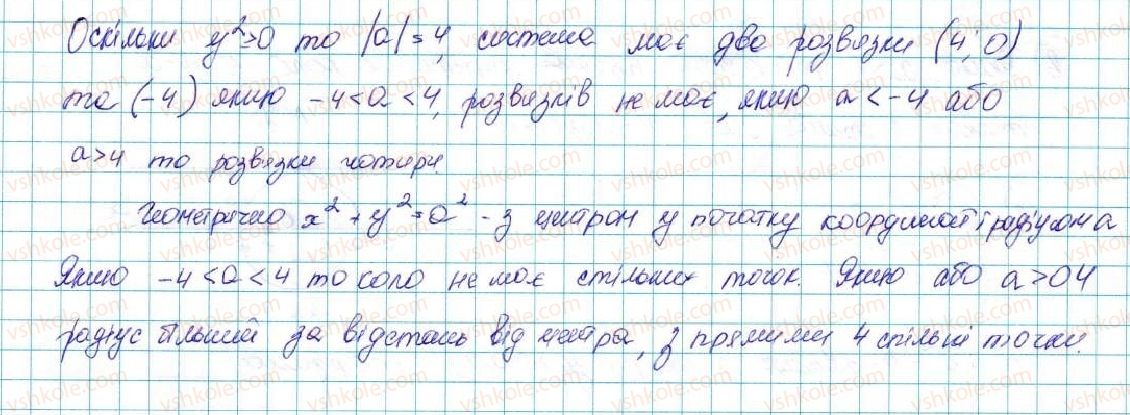 Оскільки y²≥0 то |a|=4, система має два розвязки (4; 0)
та (-4) якщо -4<a<4, розвязків не має, якщо a<-4 або
a>4 то розвязки чотири.
Геометрично x²+y²=a² - з центром у початку координат і радіусом a
Якщо -4<a<4 то коло не має спільних точок. Якщо або a>04
радіус більший за відстань від центра, з прямими 4 спільні точки.